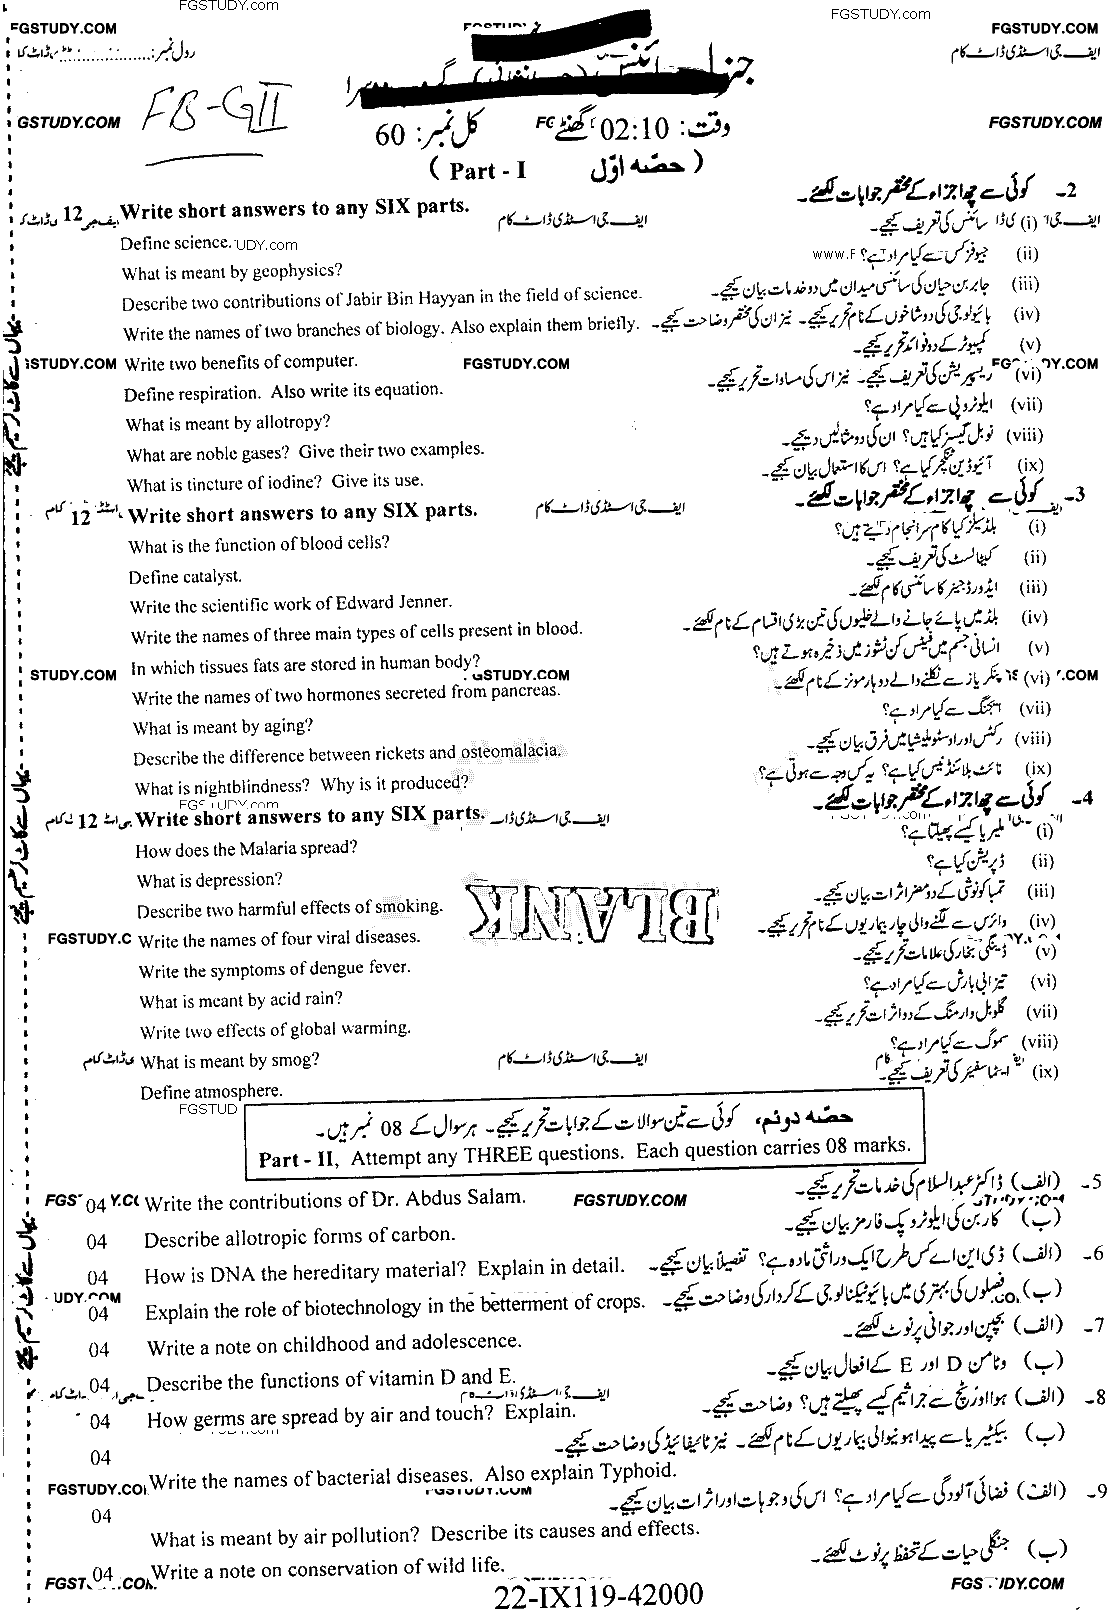 FGSTUDY.COM FGSTUDY.com FGSTUDY.com FGSTUDY.COM
رول نمبر: ایف جی اسٹڈی ڈاٹ کام
جنرل سائنس
GSTUDY.COM FB-GII FGSTUDY.COM
وقت: 02:10 گھنٹے کل نمبر: 60
(حصّہ اوّل Part - I)
2- کوئی سے چھ اجزاء کے مختصر جوابات لکھئے۔
12 Write short answers to any SIX parts. ایف جی اسٹڈی ڈاٹ کام
(i) سائنس کی تعریف کیجیے۔ Define science.
(ii) جیوفزکس سے کیا مراد ہے؟ What is meant by geophysics?
(iii) جابر بن حیان کی سائنسی میدان میں دو خدمات بیان کیجیے۔ Describe two contributions of Jabir Bin Hayyan in the field of science.
(iv) بائیولوجی کی دو شاخوں کے نام تحریر کیجیے۔ نیز ان کی مختصر وضاحت کیجیے۔ Write the names of two branches of biology. Also explain them briefly.
(v) کمپیوٹر کے دو فوائد تحریر کیجیے۔ Write two benefits of computer.
FGSTUDY.COM
(vi) ریسپریشن کی تعریف کیجیے۔ نیز اس کی مساوات تحریر کیجیے۔ Define respiration. Also write its equation.
(vii) ایلوٹروپی سے کیا مراد ہے؟ What is meant by allotropy?
(viii) نوبل گیسز کیا ہیں؟ ان کی دو مثالیں دیجیے۔ What are noble gases? Give their two examples.
(ix) آئیوڈین ٹنکچر کیا ہے؟ اس کا استعمال بیان کیجیے۔ What is tincture of iodine? Give its use.
3- کوئی سے چھ اجزاء کے مختصر جوابات لکھئے۔
12 Write short answers to any SIX parts. ایف جی اسٹڈی ڈاٹ کام
(i) بلڈ سیلز کیا کام سرانجام دیتے ہیں؟ What is the function of blood cells?
(ii) کیٹالسٹ کی تعریف کیجیے۔ Define catalyst.
(iii) ایڈورڈ جینر کا سائنسی کام لکھئے۔ Write the scientific work of Edward Jenner.
(iv) بلڈ میں پائے جانے والے خلیوں کی تین بڑی اقسام کے نام لکھئے۔ Write the names of three main types of cells present in blood.
(v) انسانی جسم میں فیٹس کن ٹشوز میں ذخیرہ ہوتے ہیں؟ In which tissues fats are stored in human body?
STUDY.COM GSTUDY.COM .COM
(vi) پنکریاز سے نکلنے والے دو ہارمونز کے نام لکھئے۔ Write the names of two hormones secreted from pancreas.
(vii) ایجنگ سے کیا مراد ہے؟ What is meant by aging?
(viii) رکٹس اور اوسٹوملیشیا میں فرق بیان کیجیے۔ Describe the difference between rickets and osteomalacia.
(ix) نائٹ بلائنڈنیس کیا ہے؟ یہ کس وجہ سے ہوتی ہے؟ What is nightblindness? Why is it produced?
4- کوئی سے چھ اجزاء کے مختصر جوابات لکھئے۔
12 Write short answers to any SIX parts.
(i) ملیریا کیسے پھیلتا ہے؟ How does the Malaria spread?
(ii) ڈپریشن کیا ہے؟ What is depression?
(iii) تمباکو نوشی کے دو مضر اثرات بیان کیجیے۔ Describe two harmful effects of smoking.
BLANK
(iv) وائرس سے لگنے والی چار بیماریوں کے نام تحریر کیجیے۔ Write the names of four viral diseases.
(v) ڈینگی بخار کی علامات تحریر کیجیے۔ Write the symptoms of dengue fever.
(vi) تیزابی بارش سے کیا مراد ہے؟ What is meant by acid rain?
(vii) گلوبل وارمنگ کے دو اثرات تحریر کیجیے۔ Write two effects of global warming.
(viii) سموگ سے کیا مراد ہے؟ What is meant by smog?
ایف جی اسٹڈی ڈاٹ کام
(ix) ایٹماسفیئر کی تعریف کیجیے۔ Define atmosphere.
حصّہ دوئم، کوئی سے تین سوالات کے جوابات تحریر کیجیے۔ ہر سوال کے 08 نمبر ہیں۔
Part - II, Attempt any THREE questions. Each question carries 08 marks.
5- (الف) ڈاکٹر عبدالسلام کی خدمات تحریر کیجیے۔ 04 Write the contributions of Dr. Abdus Salam.
FGSTUDY.COM
(ب) کاربن کی ایلوٹروپک فارمز بیان کیجیے۔ 04 Describe allotropic forms of carbon.
6- (الف) ڈی این اے کس طرح ایک وراثتی مادہ ہے؟ تفصیلاً بیان کیجیے۔ 04 How is DNA the hereditary material? Explain in detail.
(ب) فصلوں کی بہتری میں بائیوٹیکنالوجی کے کردار کی وضاحت کیجیے۔ 04 Explain the role of biotechnology in the betterment of crops.
7- (الف) بچپن اور جوانی پر نوٹ لکھئے۔ 04 Write a note on childhood and adolescence.
(ب) وٹامن D اور E کے افعال بیان کیجیے۔ 04 Describe the functions of vitamin D and E.
8- (الف) ہوا اور ٹچ سے جراثیم کیسے پھیلتے ہیں؟ وضاحت کیجیے۔ 04 How germs are spread by air and touch? Explain.
(ب) بیکٹیریا سے پیدا ہونیوالی بیماریوں کے نام لکھئے۔ نیز ٹائیفائیڈ کی وضاحت کیجیے۔ 04 Write the names of bacterial diseases. Also explain Typhoid.
9- (الف) فضائی آلودگی سے کیا مراد ہے؟ اس کی وجوہات اور اثرات بیان کیجیے۔ 04 What is meant by air pollution? Describe its causes and effects.
(ب) جنگلی حیات کے تحفظ پر نوٹ لکھئے۔ 04 Write a note on conservation of wild life.
22-IX119-42000